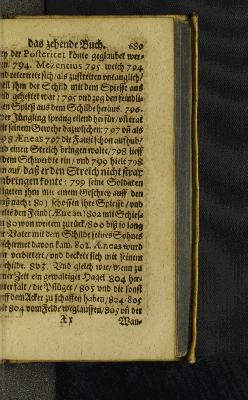 das zehende Buch. 689
der Posteritet könte geglaubet wer-
en. 794. Mezentius 795 weich 794
nd reterirete sich/ als zustreiten untauglich/
eil ihm der Schild mit dem Spiesse ans
d geheftet war: 795 und zog den feindli-
en Spieß aus dem Schilde heraus. 796.
der Jüngling sprang
it seinem Gewehr dazwischen: 797 uñ als
798 Æneas 797 die Faust schon aufhub/
nd einen Streich bringen wolte/ 798 lieff
dem Schwerdte ein/ und 799 hielt 798
n auf/ daß er den Streich nicht
nbringen konte: 799 seine Soldaten
lgeten ihm mit einem Geschrey auff den
uß nach: 801 schossen ihre Spiesse/ und
elte den Feind (Æneam) 802 mit Schies-
n 80 von weitem zurück/ 800 biß so lang
r Vater mit dem Schilde seines Sohnes
schirmet davon kam. 802. Æneas wurd
verbittert/ und deckete sich mit seinem
childe. 803. Und gleich wie/ wenn zu
ner Zeit ein gewaltiger Hagel 804 her-
nter fält/ die Pflüger/ 805 und die sonst
ff dem Acker zu schaffen haben/ 804 805
it 804 vom Felde/ weglauffen/ 805 uñ der
Xx Wan-